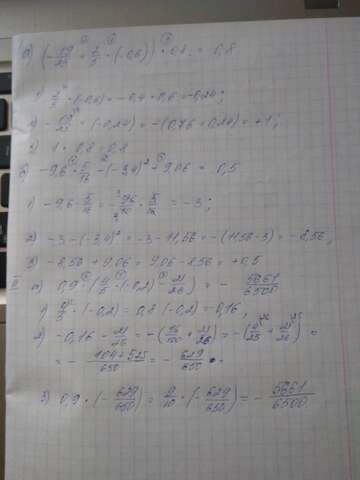 1) 2/5 · (-0,6) = -0,4 · 0,6 = -0,24;
2) -19/25 + (-0,24) = -(0,76 + 0,24) = +1;
3) 1 · 0,8 = 0,8
б) -9,6 · 5/16 - (-3,4)² + 9,06 = 0,5
1) -9,6 · 5/16 = 96/10 · 5/16 = -3;
2) -3 - (-3,4)² = -3 - 11,56 = -(11,56 - 3) = -8,56,
3) -8,56 + 9,06 = 9,06 - 8,56 = +0,5
II а) 0,9 · (4/5 · (-0,2) - 21/26) = - 5661/6500
1) 4/5 · (-0,2) = 0,8 · (-0,2) = 0,16,
2) -0,16 - 21/26 = -(16/100 + 21/26) = -(4/25 + 21/26) =
= - 104+525/650 = - 629/650.
3) 0,9 · (- 629/650) = 9/10 · (- 629/650) = - 5661/6500